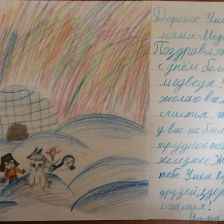 Дорогие Умка и
мама-Медв
Поздравля
с днём бело
медведя!
желаю ва
счастья, чт
у вас не был
трудносте
жизни. Ж
тебе Умка
друзей, здор
счастья!